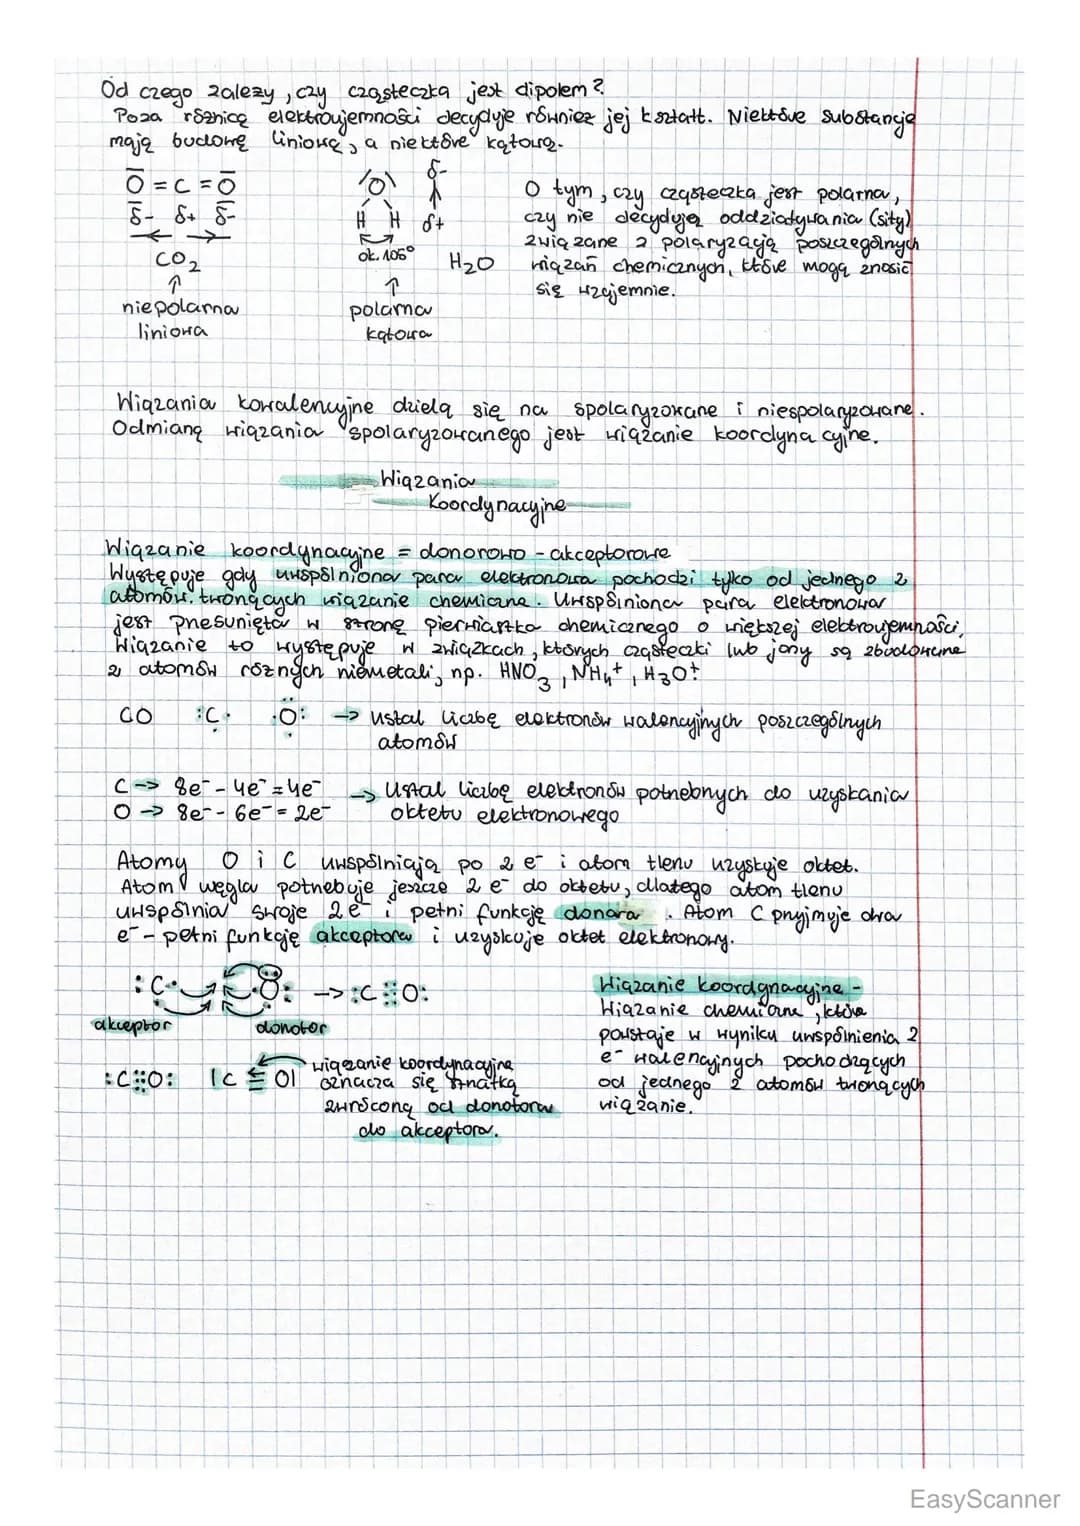 Od czego zależy, czy cząsteczka jest dipolem?
Poza różnicą elektroujemności decyduje również jej kształt. Niektóre substancje
mają budowę liniową, a niektóre kątową.
O = C = O
δ- δ+ δ-
CO2
↑
niepolarna
liniowa
O
H H
ok. 105°
δ-
δ+
H2O
↑
polarna
kątowa
O tym, czy cząsteczka jest polarna,
czy nie decydują oddziaływania (siły)
związane z polaryzacją poszczególnych
wiązań chemicznych, które mogą znosić
się wzajemnie.
Wiązania kowalencyjne dzielą się na spolaryzowane i niespolaryzowane.
Odmianą wiązania spolaryzowanego jest wiązanie koordynacyjne.
Wiązania
Koordynacyjne
Wiązanie koordynacyjne = donorowo - akceptorowe
Występuje gdy uwspólniona para elektronowa pochodzi tylko od jednego z
atomów tworzących wiązanie chemiczne. Uwspólniona para elektronowa
jest przesunięta w stronę pierwiastka chemicznego o większej elektroujemności.
Wiązanie to występuje w związkach, których cząsteczki lub jony są zbudowane
z atomów różnych niemetali, np. HNO3, NH4+, H3O+
CO :C· ·O: → Ustal liczbę elektronów walencyjnych poszczególnych
atomów
C → 8e- - 4e- = 4e- → Ustal liczbę elektronów potrzebnych do uzyskania
O → 8e- - 6e- = 2e- oktetu elektronowego
Atomy O i C uwspólniają po 2 e- i atom tlenu uzyskuje oktet.
Atom węgla potrzebuje jeszcze 2 e- do oktetu, dlatego atom tlenu
uwspólnia swoje 2e- i pełni funkcję donora. Atom C przyjmuje dwa
e- - pełni funkcję akceptora i uzyskuje oktet elektronowy.
:C· O: → :C⋮⋮O:
akceptor donotor
:C⋮⋮O: |C ≡ O|
wiązanie koordynacyjne
oznacza się strzałką
zwróconą od donotora
do akceptora.
Wiązanie koordynacyjne -
Wiązanie chemiczne, które
powstaje w wyniku uwspólnienia 2
e- walencyjnych pochodzących
od jednego z atomów tworzących
wiązanie.
EasyScanner